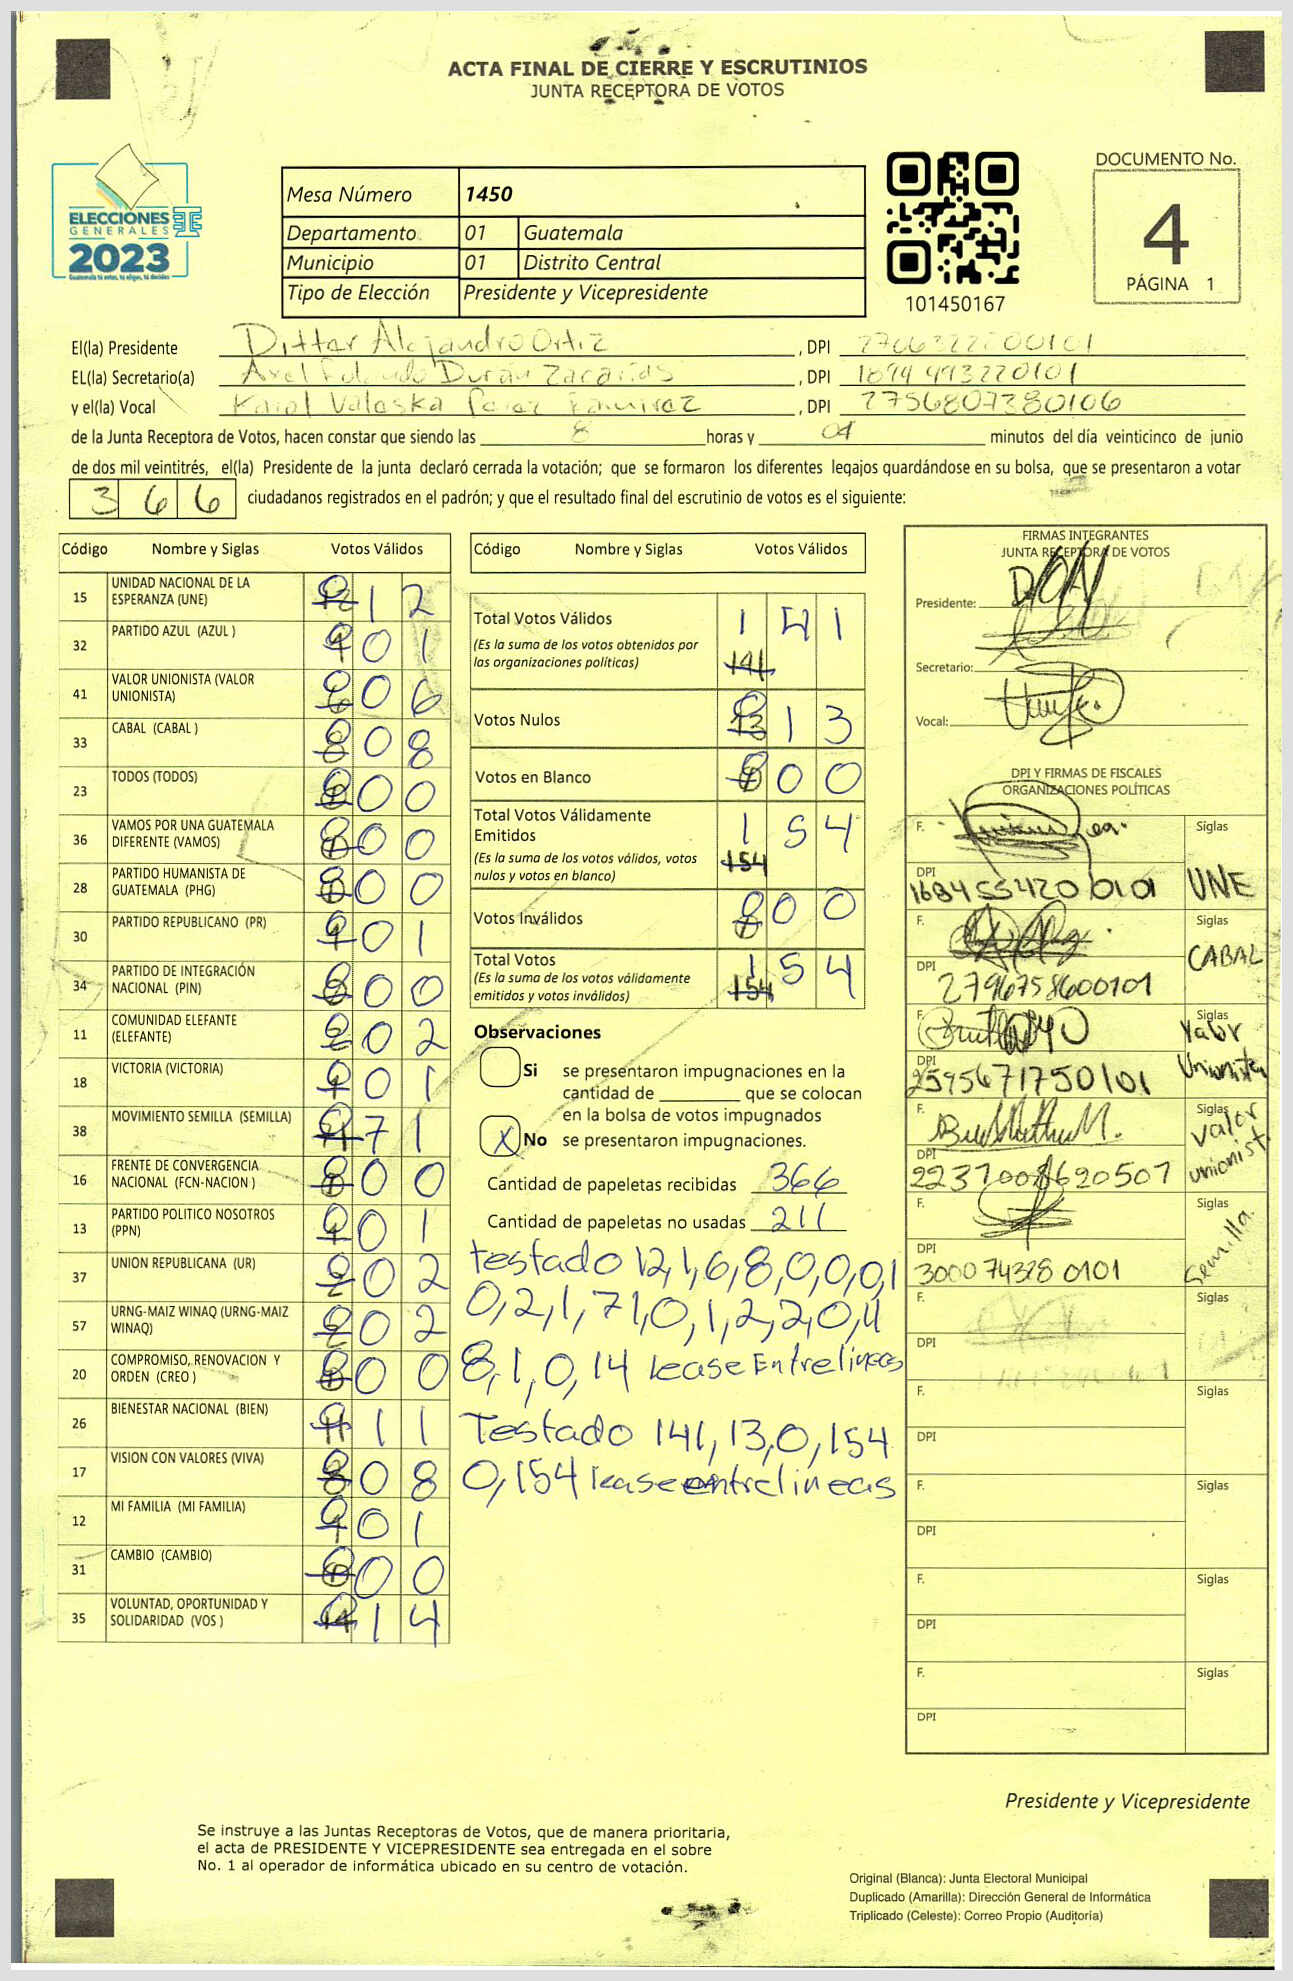 ACTA FINAL DE CIERRE Y ESCRUTINIOS
JUNTA RECEPTORA DE VOTOS
ELECCIONES
GENERALES
2023
Guatemala tú votas, tú eliges, tú decides
Mesa Número 1450
Departamento 01 Guatemala
Municipio 01 Distrito Central
Tipo de Elección Presidente y Vicepresidente
101450167
DOCUMENTO No.
4
PÁGINA 1
El(la) Presidente Ditter Alejandro Ortiz , DPI
EL(la) Secretario(a) Axel Durán Zacarías , DPI 1894 493220101
y el(la) Vocal Karol Valeska Perez Ramirez , DPI 2756807380106
de la Junta Receptora de Votos, hacen constar que siendo las 8 horas y 04 minutos del día veinticinco de junio
de dos mil veintitrés, el(la) Presidente de la junta declaró cerrada la votación; que se formaron los diferentes legajos guardándose en su bolsa, que se presentaron a votar
366 ciudadanos registrados en el padrón; y que el resultado final del escrutinio de votos es el siguiente:
Código Nombre y Siglas Votos Válidos
15 UNIDAD NACIONAL DE LA ESPERANZA (UNE) 012
32 PARTIDO AZUL (AZUL ) 001
41 VALOR UNIONISTA (VALOR UNIONISTA) 006
33 CABAL (CABAL ) 008
23 TODOS (TODOS) 000
36 VAMOS POR UNA GUATEMALA DIFERENTE (VAMOS) 000
28 PARTIDO HUMANISTA DE GUATEMALA (PHG) 000
30 PARTIDO REPUBLICANO (PR) 001
34 PARTIDO DE INTEGRACIÓN NACIONAL (PIN) 000
11 COMUNIDAD ELEFANTE (ELEFANTE) 002
18 VICTORIA (VICTORIA) 001
38 MOVIMIENTO SEMILLA (SEMILLA) 071
16 FRENTE DE CONVERGENCIA NACIONAL (FCN-NACION ) 000
13 PARTIDO POLITICO NOSOTROS (PPN) 001
37 UNION REPUBLICANA (UR) 002
57 URNG-MAIZ WINAQ (URNG-MAIZ WINAQ) 002
20 COMPROMISO, RENOVACION Y ORDEN (CREO ) 000
26 BIENESTAR NACIONAL (BIEN) 011
17 VISION CON VALORES (VIVA) 008
12 MI FAMILIA (MI FAMILIA) 001
31 CAMBIO (CAMBIO) 000
35 VOLUNTAD, OPORTUNIDAD Y SOLIDARIDAD (VOS ) 014
Código Nombre y Siglas Votos Válidos
Total Votos Válidos 141
(Es la suma de los votos obtenidos por
las organizaciones políticas) 141
Votos Nulos 013
Votos en Blanco 000
Total Votos Válidamente
Emitidos 154
(Es la suma de los votos válidos, votos
nulos y votos en blanco) 154
Votos Inválidos 000
Total Votos 154
(Es la suma de los votos válidamente
emitidos y votos inválidos) 154
Observaciones
Si se presentaron impugnaciones en la
cantidad de ________ que se colocan
en la bolsa de votos impugnados
X No se presentaron impugnaciones.
Cantidad de papeletas recibidas 366
Cantidad de papeletas no usadas 211
testado 12,1,6,8,0,0,0,1
0,2,1,71,0,1,2,2,0,11
8,1,0,14 lease Entrelineas
Testado 141,13,0,154
0,154 lease entrelineas
FIRMAS INTEGRANTES
JUNTA RECEPTORA DE VOTOS
Presidente:
Secretario:
Vocal:
DPI Y FIRMAS DE FISCALES
ORGANIZACIONES POLÍTICAS
F. Siglas
DPI 1684 55420 0101 UNE
F. Siglas
DPI 2796758600101 CABAL
F. Siglas
DPI 2595671750101 Valor Unionista
F. Siglas
DPI 2237008620507 Valor unionist.
F. Siglas
DPI 3000 74328 0101 Semilla.
F. Siglas
DPI
F. Siglas
DPI
F. Siglas
DPI
F. Siglas
DPI
F. Siglas
DPI
Presidente y Vicepresidente
Se instruye a las Juntas Receptoras de Votos, que de manera prioritaria,
el acta de PRESIDENTE Y VICEPRESIDENTE sea entregada en el sobre
No. 1 al operador de informática ubicado en su centro de votación.
Original (Blanca): Junta Electoral Municipal
Duplicado (Amarilla): Dirección General de Informática
Triplicado (Celeste): Correo Propio (Auditoría)